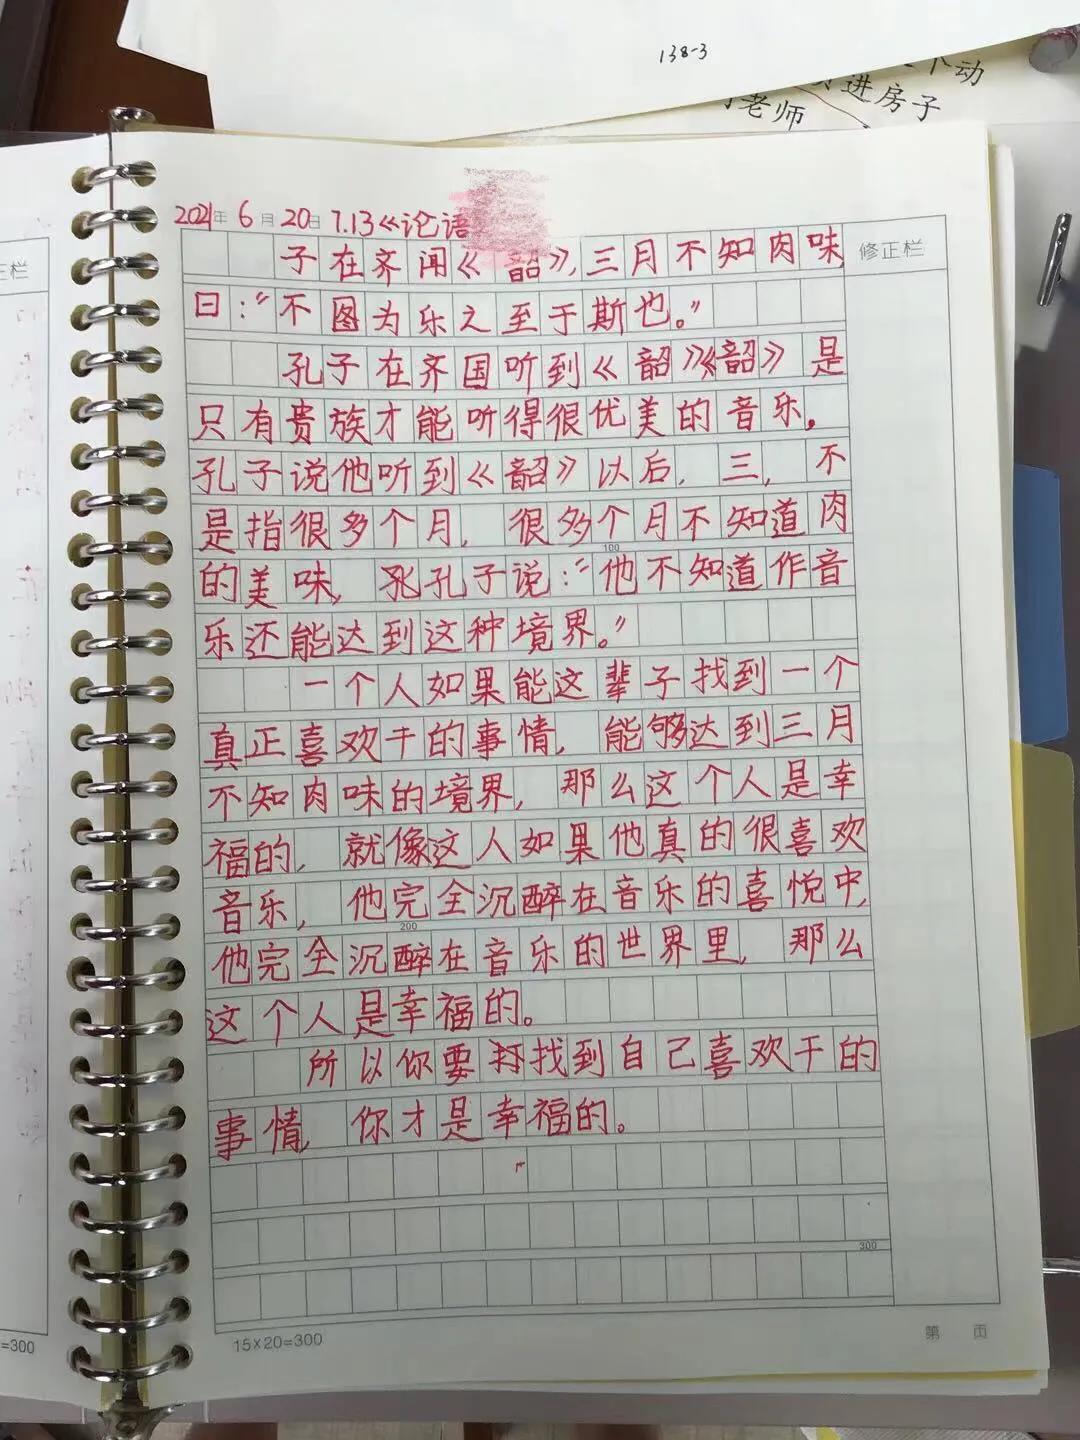 138-3
个动
进房子
老师
2021年 6月 20日 7.13《论语
正栏
修正栏
子在齐闻《韶》,三月不知肉味,
曰:“不图为乐之至于斯也。”
孔子在齐国听到《韶》《韶》是
只有贵族才能听得很优美的音乐。
孔子说他听到《韶》以后,三,不
是指很多个月,很多个月不知道肉
100
的美味,孔子说:“他不知道作音
乐还能达到这种境界。”
一个人如果能这辈子找到一个
真正喜欢干的事情,能够达到三月
不知肉味的境界,那么这个人是幸
福的,就像这人如果他真的很喜欢
音乐,他完全沉醉在音乐的喜悦中,
200
他完全沉醉在音乐的世界里,那么
这个人是幸福的。
所以你要找到自己喜欢干的
事情,你才是幸福的。
300
=300
15×20=300
第 页